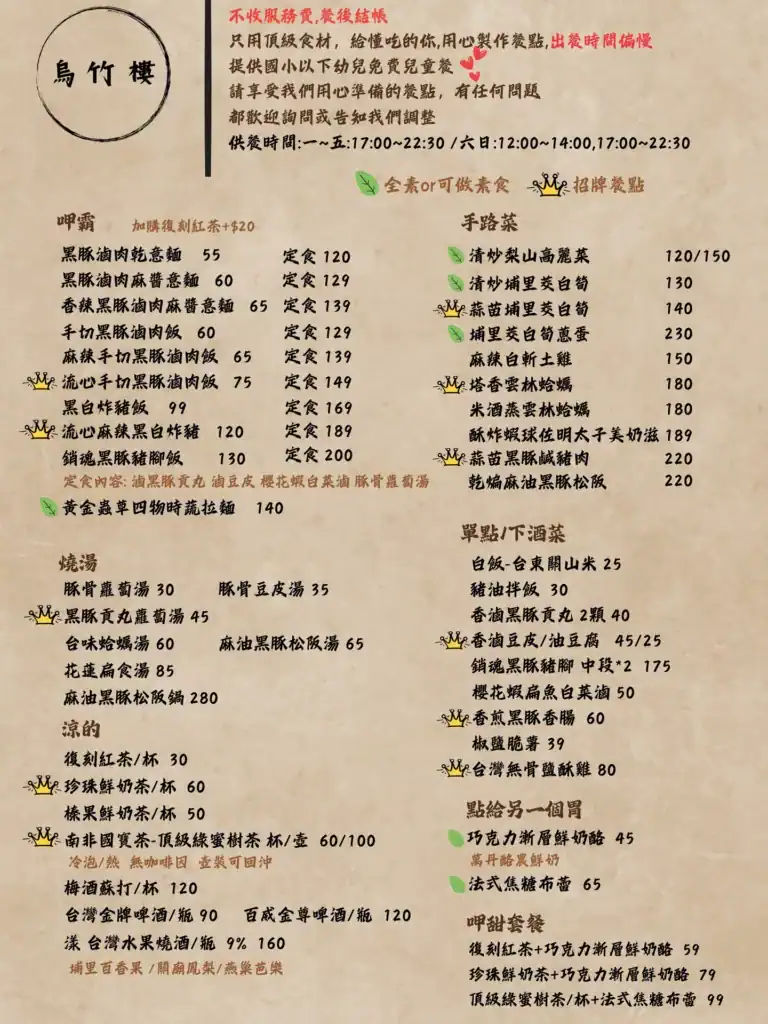 烏竹樓
不收服務費,餐後結帳
只用頂級食材，給懂吃的你,用心製作餐點,出餐時間偏慢
提供國小以下幼兒免費兒童餐
請享受我們用心準備的餐點，有任何問題
都歡迎詢問或告知我們調整
供餐時間:一~五:17:00~22:30 /六日:12:00~14:00,17:00~22:30
全素or可做素食 招牌餐點
呷霸 加購復刻紅茶+$20
黑豚滷肉乾意麵 55 定食 120
黑豚滷肉麻醬意麵 60 定食 129
香辣黑豚滷肉麻醬意麵 65 定食 139
手切黑豚滷肉飯 60 定食 129
麻辣手切黑豚滷肉飯 65 定食 139
流心手切黑豚滷肉飯 75 定食 149
黑白炸豬飯 99 定食 169
流心麻辣黑白炸豬 120 定食 189
銷魂黑豚豬腳飯 130 定食 200
定食內容: 滷黑豚貢丸 滷豆皮 櫻花蝦白菜滷 豚骨蘿蔔湯
黃金蟲草四物時蔬拉麵 140
燒湯
豚骨蘿蔔湯 30 豚骨豆皮湯 35
黑豚貢丸蘿蔔湯 45
台味蛤蠣湯 60 麻油黑豚松阪湯 65
花蓮扁食湯 85
麻油黑豚松阪鍋 280
涼的
復刻紅茶/杯 30
珍珠鮮奶茶/杯 60
榛果鮮奶茶/杯 50
南非國寶茶-頂級綠蜜樹茶 杯/壺 60/100
冷泡/熱 無咖啡因 壺裝可回沖
梅酒蘇打/杯 120
台灣金牌啤酒/瓶 90 百威金尊啤酒/瓶 120
漾 台灣水果燒酒/瓶 9% 160
埔里百香果 /關廟鳳梨/燕巢芭樂
手路菜
清炒梨山高麗菜 120/150
清炒埔里茭白筍 130
蒜苗埔里茭白筍 140
埔里茭白筍蔥蛋 230
麻辣白斬土雞 150
塔香雲林蛤蠣 180
米酒蒸雲林蛤蠣 180
酥炸蝦球佐明太子美奶滋 189
蒜苗黑豚鹹豬肉 220
乾煸麻油黑豚松阪 220
單點/下酒菜
白飯-台東關山米 25
豬油拌飯 30
香滷黑豚貢丸 2顆 40
香滷豆皮/油豆腐 45/25
銷魂黑豚豬腳 中段*2 175
櫻花蝦扁魚白菜滷 50
香煎黑豚香腸 60
椒鹽脆薯 39
台灣無骨鹽酥雞 80
點給另一個胃
巧克力漸層鮮奶酪 45
萬丹酪農鮮奶
法式焦糖布蕾 65
呷甜套餐
復刻紅茶+巧克力漸層鮮奶酪 59
珍珠鮮奶茶+巧克力漸層鮮奶酪 79
頂級綠蜜樹茶/杯+法式焦糖布蕾 99